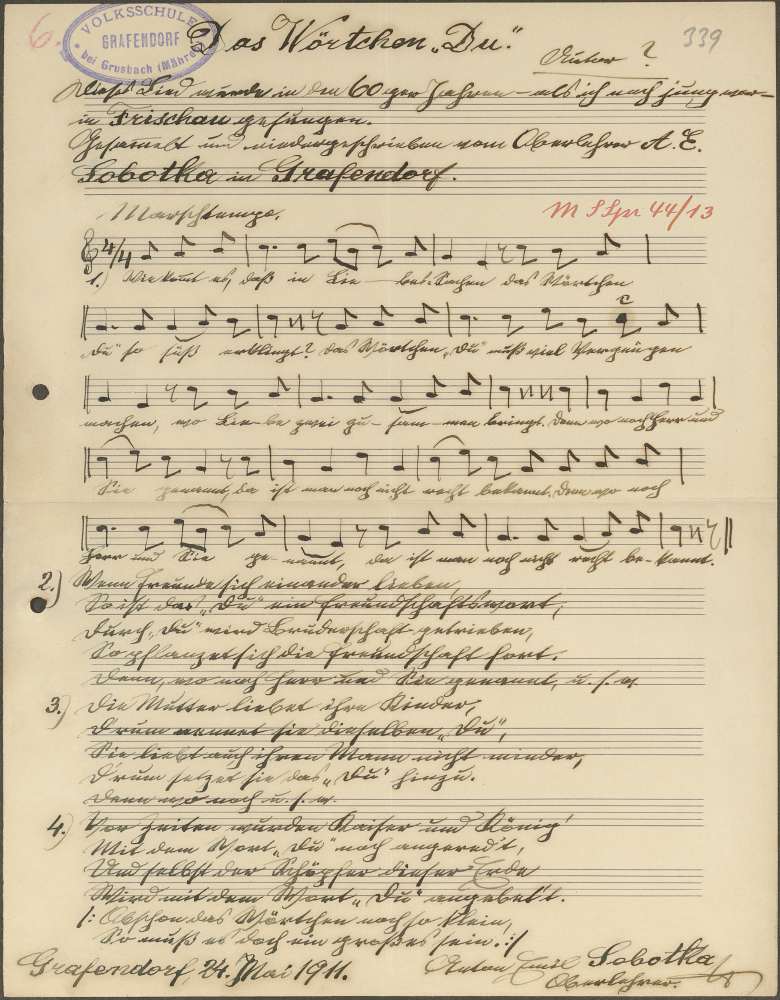 6.
VOLKSSCHULE
GRAFENDORF
bei Grusbach (Mähren)
339
Das Wörtchen „Du“.
Autor ?
Dieses Lied wurde in den 60ger Jahren – als ich noch jung war –
in Frischau gesungen.
Gesammelt und niedergeschrieben vom Oberlehrer A. E.
Sobotka in Grafendorf.
Marschtempo.
44/13
4/4
1.) Wie kommt es, daß in Lie – bes-Sachen das Wörtchen
„Du“ so süß erklingt? Das Wörtchen „Du“ muß viel Vergnügen
machen, wo Lie-be zwei zu – sam – men bringt. Denn wo noch Herr und
Sie genannt, da ist man noch nicht recht bekannt. Denn wo noch
Herr und Sie ge – nannt, da ist man noch nicht recht be – kannt.
2.) Wenn Freunde sich einander lieben,
So ist das „Du“ ein Freundschaftswort,
Durch „Du“ wird Bruderschaft getrieben,
So pflanzet sich die Freundschaft fort.
Denn, wo noch Herr und Sie genannt, u. s. w.
3.) Die Mutter liebet ihre Kinder,
Drum nennet sie dieselben „Du“,
Sie liebt auch ihren Mann nicht minder,
D'rum setzet sie das „Du“ hinzu.
Denn wo noch u. s. w.
4.) Vor Zeiten wurden Kaiser und König'
Mit dem Wort „Du“ noch angered't,
Und selbst der Schöpfer dieser Erde
Wird mit dem Wort „Du“ angebet't.
/: Obschon das Wörtchen noch so klein,
So muß es doch ein großes sein. :/
Grafendorf, 24. Mai 1911.
Anton Emil Sobotka
Oberlehrer.